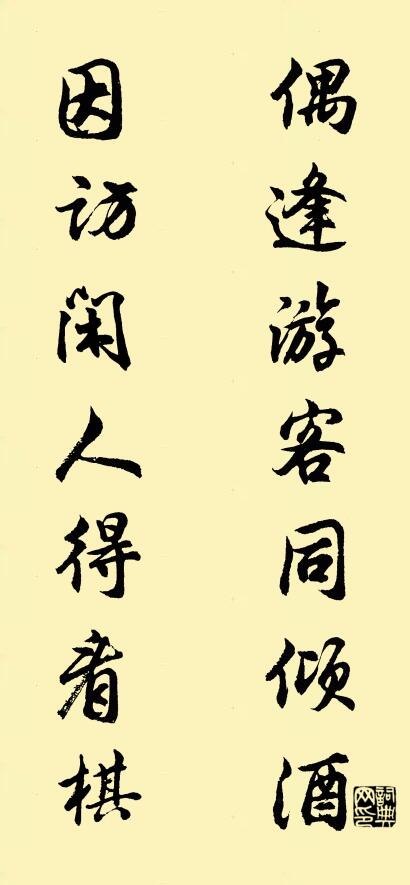 偶逢游客同倾酒
因访闲人得看棋
詞典网印